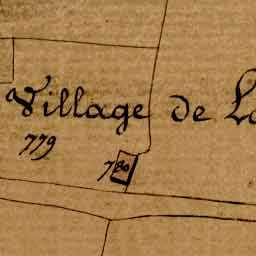 Village de
779
780